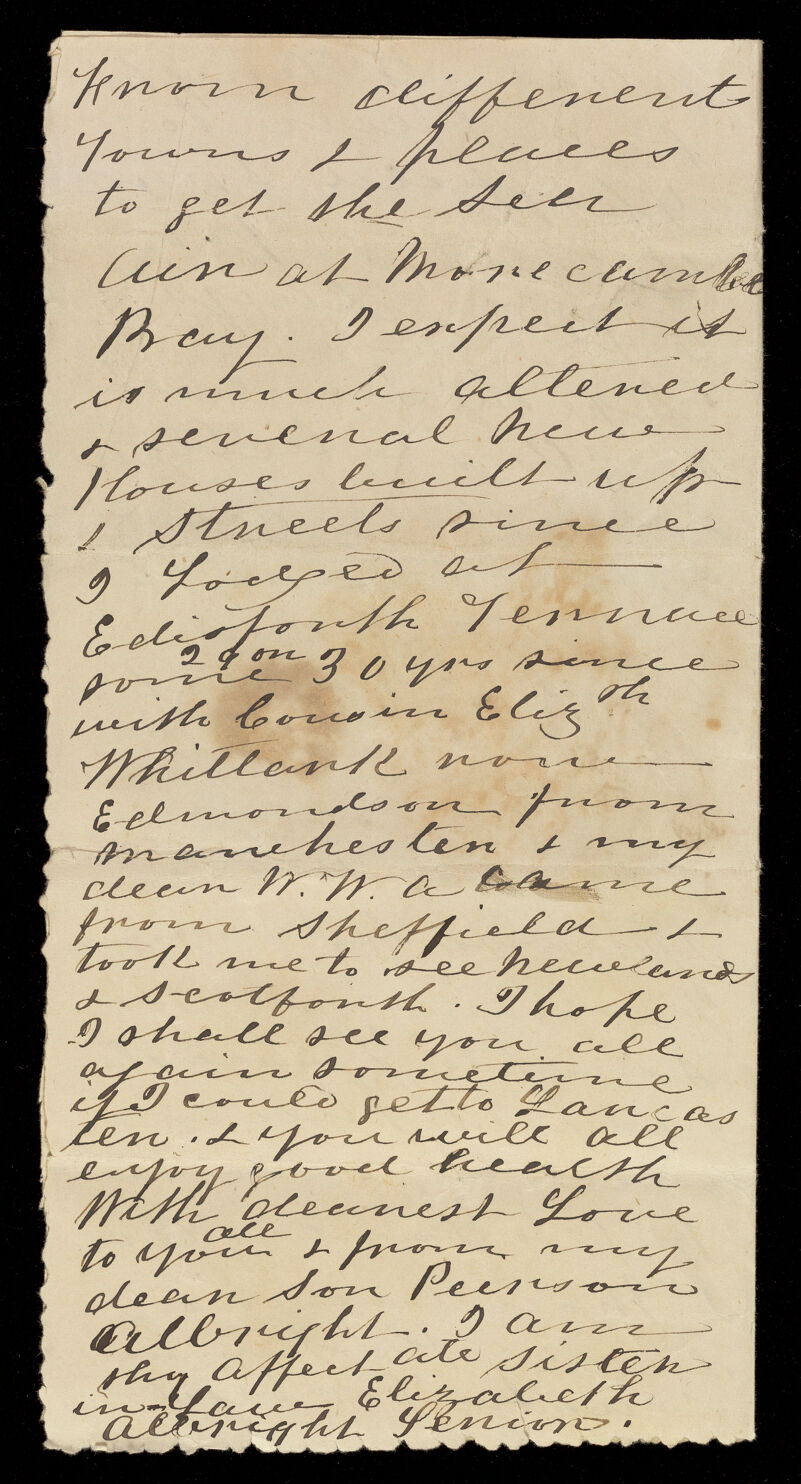 from different
Towns & places
to get the Sea
Air at Morecambe
Bay. I expect it
is much altered
& several new
Houses built up
& Streets since
I Lodged at
Edisforth Terrace
some 29 or 30 yrs since
with Cousin Eliz th
Whittark now
Edmondson from
Manchester & my
dear W. W. A came
from Sheffield &
took me to see Newlands
& Scotforth. I hope
I shall see you all
again sometime
if I could get to Lancas
ter. & you will all
enjoy good health
With dearest Love
to you all & from my
dear Son Peerson
Albright. I am
thy affect ate sister
in-Law Elizabeth
Albright Senior.